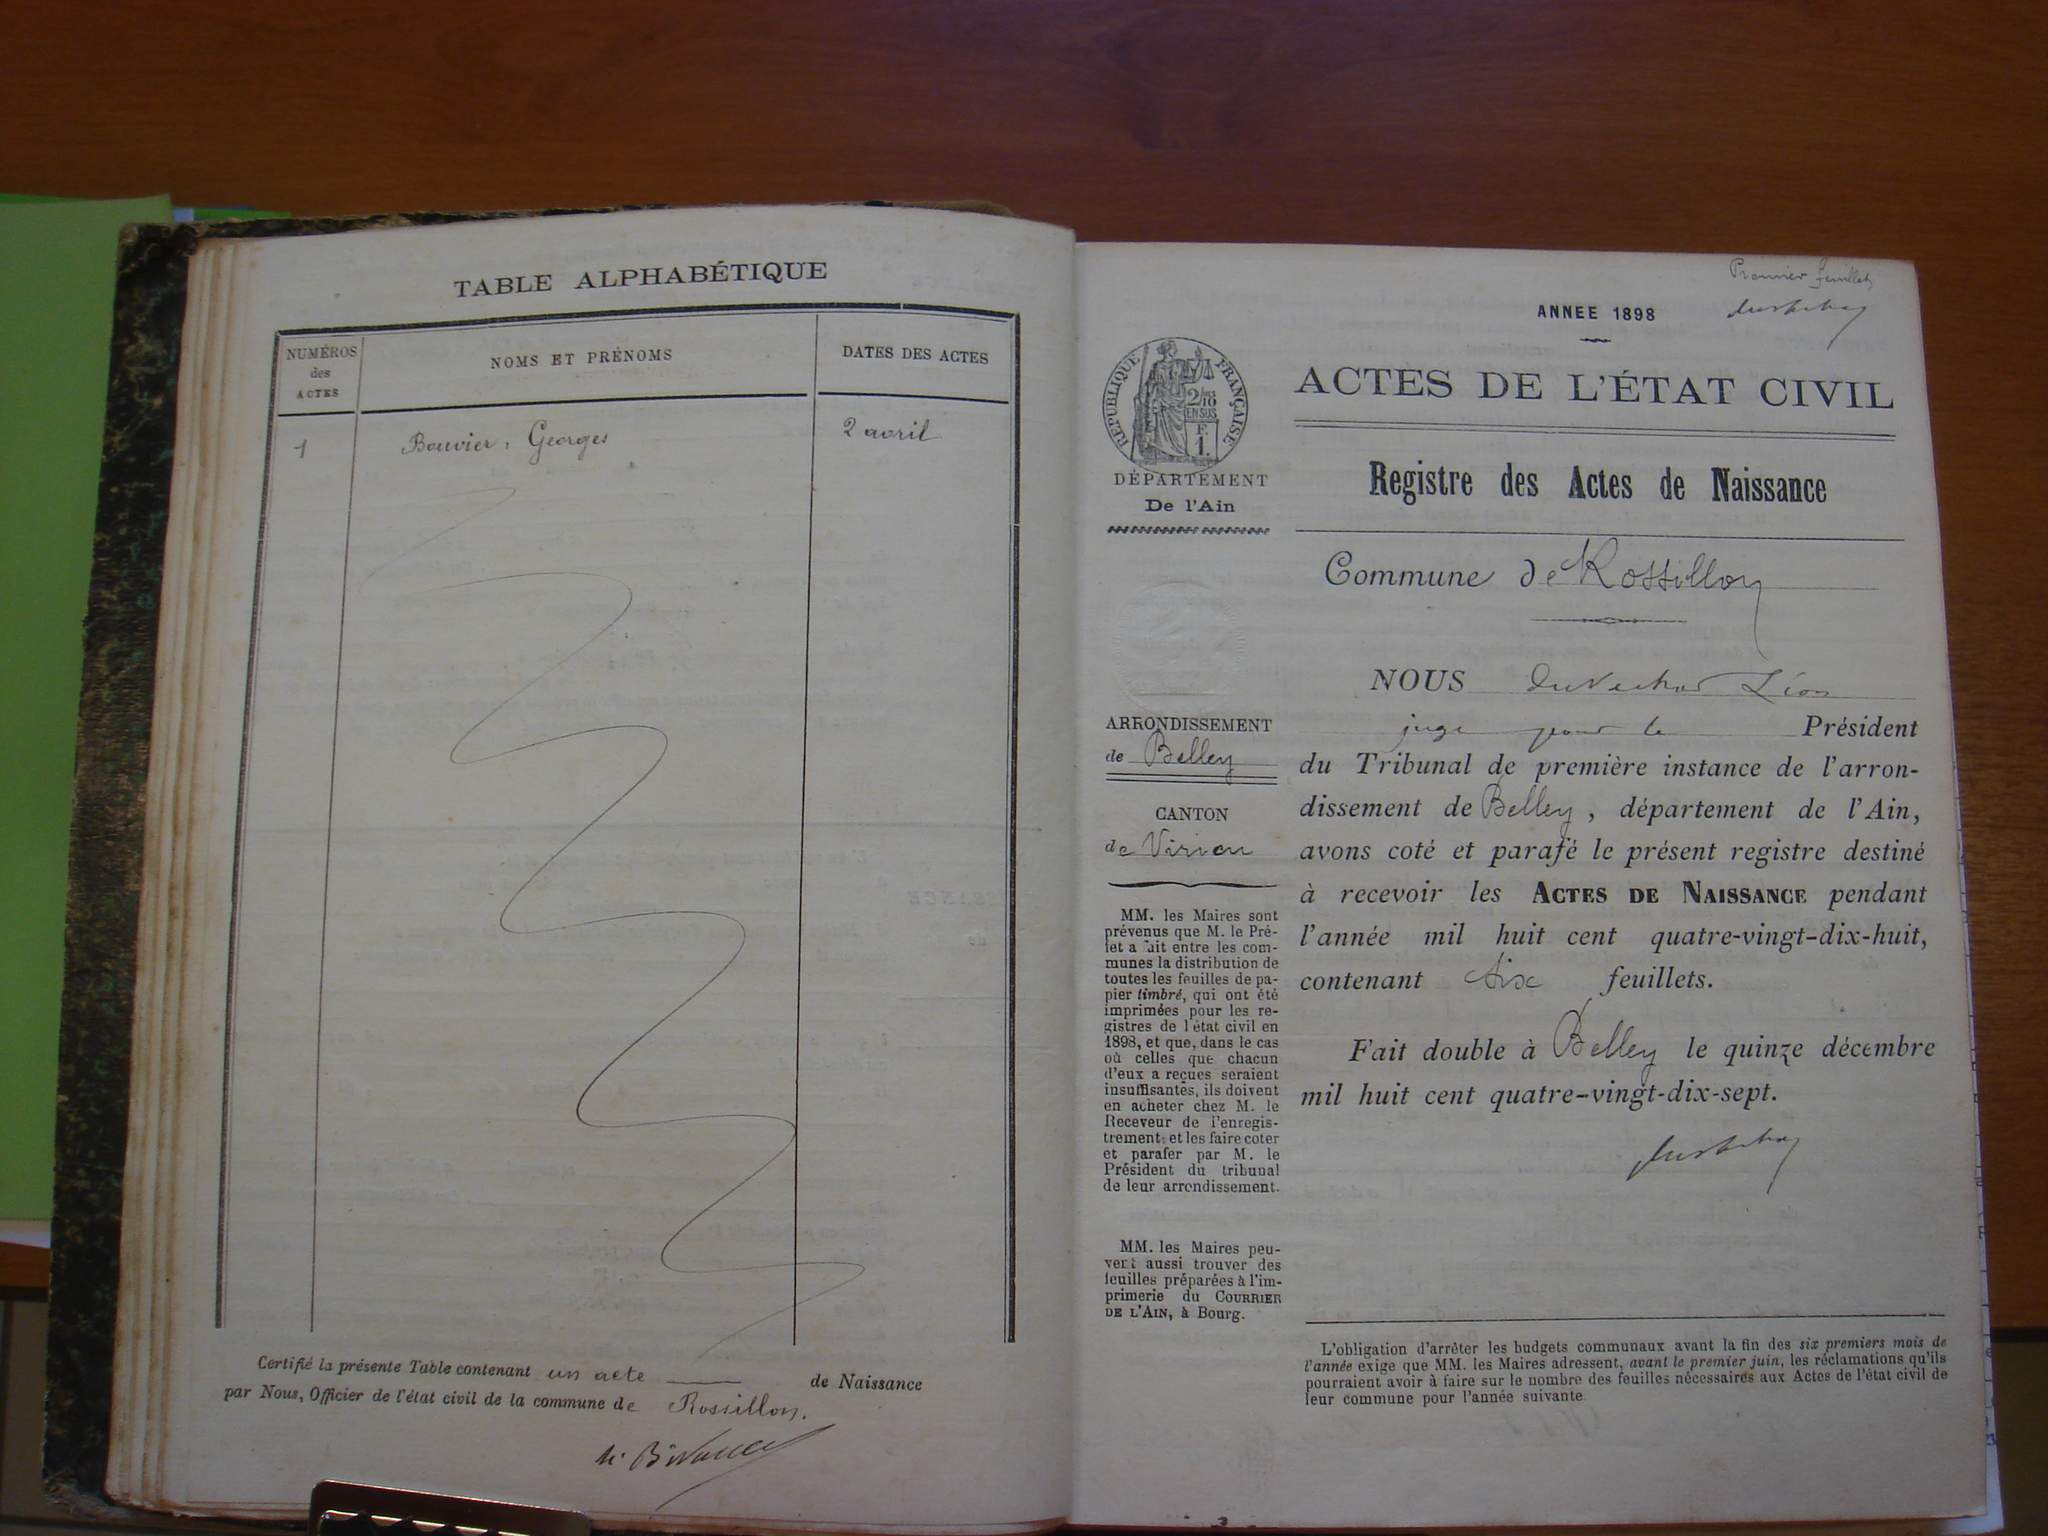 TABLE ALPHABÉTIQUE
NUMÉROS
des
ACTES
NOMS ET PRÉNOMS
DATES DES ACTES
1
Bouvier, Georges
2 avril
Certifié la présente Table contenant un acte de Naissance
par Nous, Officier de l'état civil de la commune de Rossillon.
Premier feuillet
ANNEE 1898
RÉPUBLIQUE FRANÇAISE
2/10
EN SUS
F.
1.
DÉPARTEMENT
De l'Ain
ACTES DE L'ÉTAT CIVIL
Registre des Actes de Naissance
Commune de Rossillon
ARRONDISSEMENT
de Belley
CANTON
de Virieu
MM. les Maires sont
prévenus que M. le Pré-
fet a fait entre les com-
munes la distribution de
toutes les feuilles de pa-
pier timbré, qui ont été
imprimées pour les re-
gistres de l'état civil en
1898, et que, dans le cas
où celles que chacun
d'eux a reçues seraient
insuffisantes, ils doivent
en acheter chez M. le
Receveur de l'enregis-
trement et les faire coter
et parafer par M. le
Président du tribunal
de leur arrondissement.
MM. les Maires peu-
vent aussi trouver des
feuilles préparées à l'im-
primerie du COURRIER
DE L'AIN, à Bourg.
NOUS Léon
juge pour le Président
du Tribunal de première instance de l'arron-
dissement de Belley, département de l'Ain,
avons coté et parafé le présent registre destiné
à recevoir les ACTES DE NAISSANCE pendant
l'année mil huit cent quatre-vingt-dix-huit,
contenant six feuillets.
Fait double à Belley le quinze décembre
mil huit cent quatre-vingt-dix-sept.
L'obligation d'arrêter les budgets communaux avant la fin des six premiers mois de
l'année exige que MM. les Maires adressent, avant le premier juin, les réclamations qu'ils
pourraient avoir à faire sur le nombre des feuilles nécessaires aux Actes de l'état civil de
leur commune pour l'année suivante